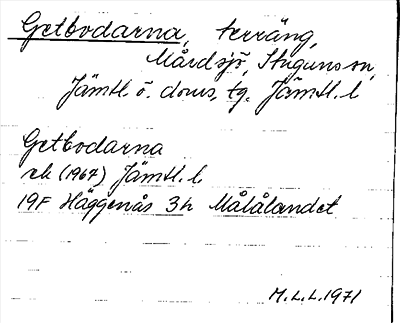 Getbodarna, terräng,
Mårdsjö, Stuguns sn,
Jämtl. ö. doms. tg. Jämtl. l
Getbodarna
ek (1967) Jämtl. l.
19F Häggenås 3h Målålandet
M.L.L. 1971